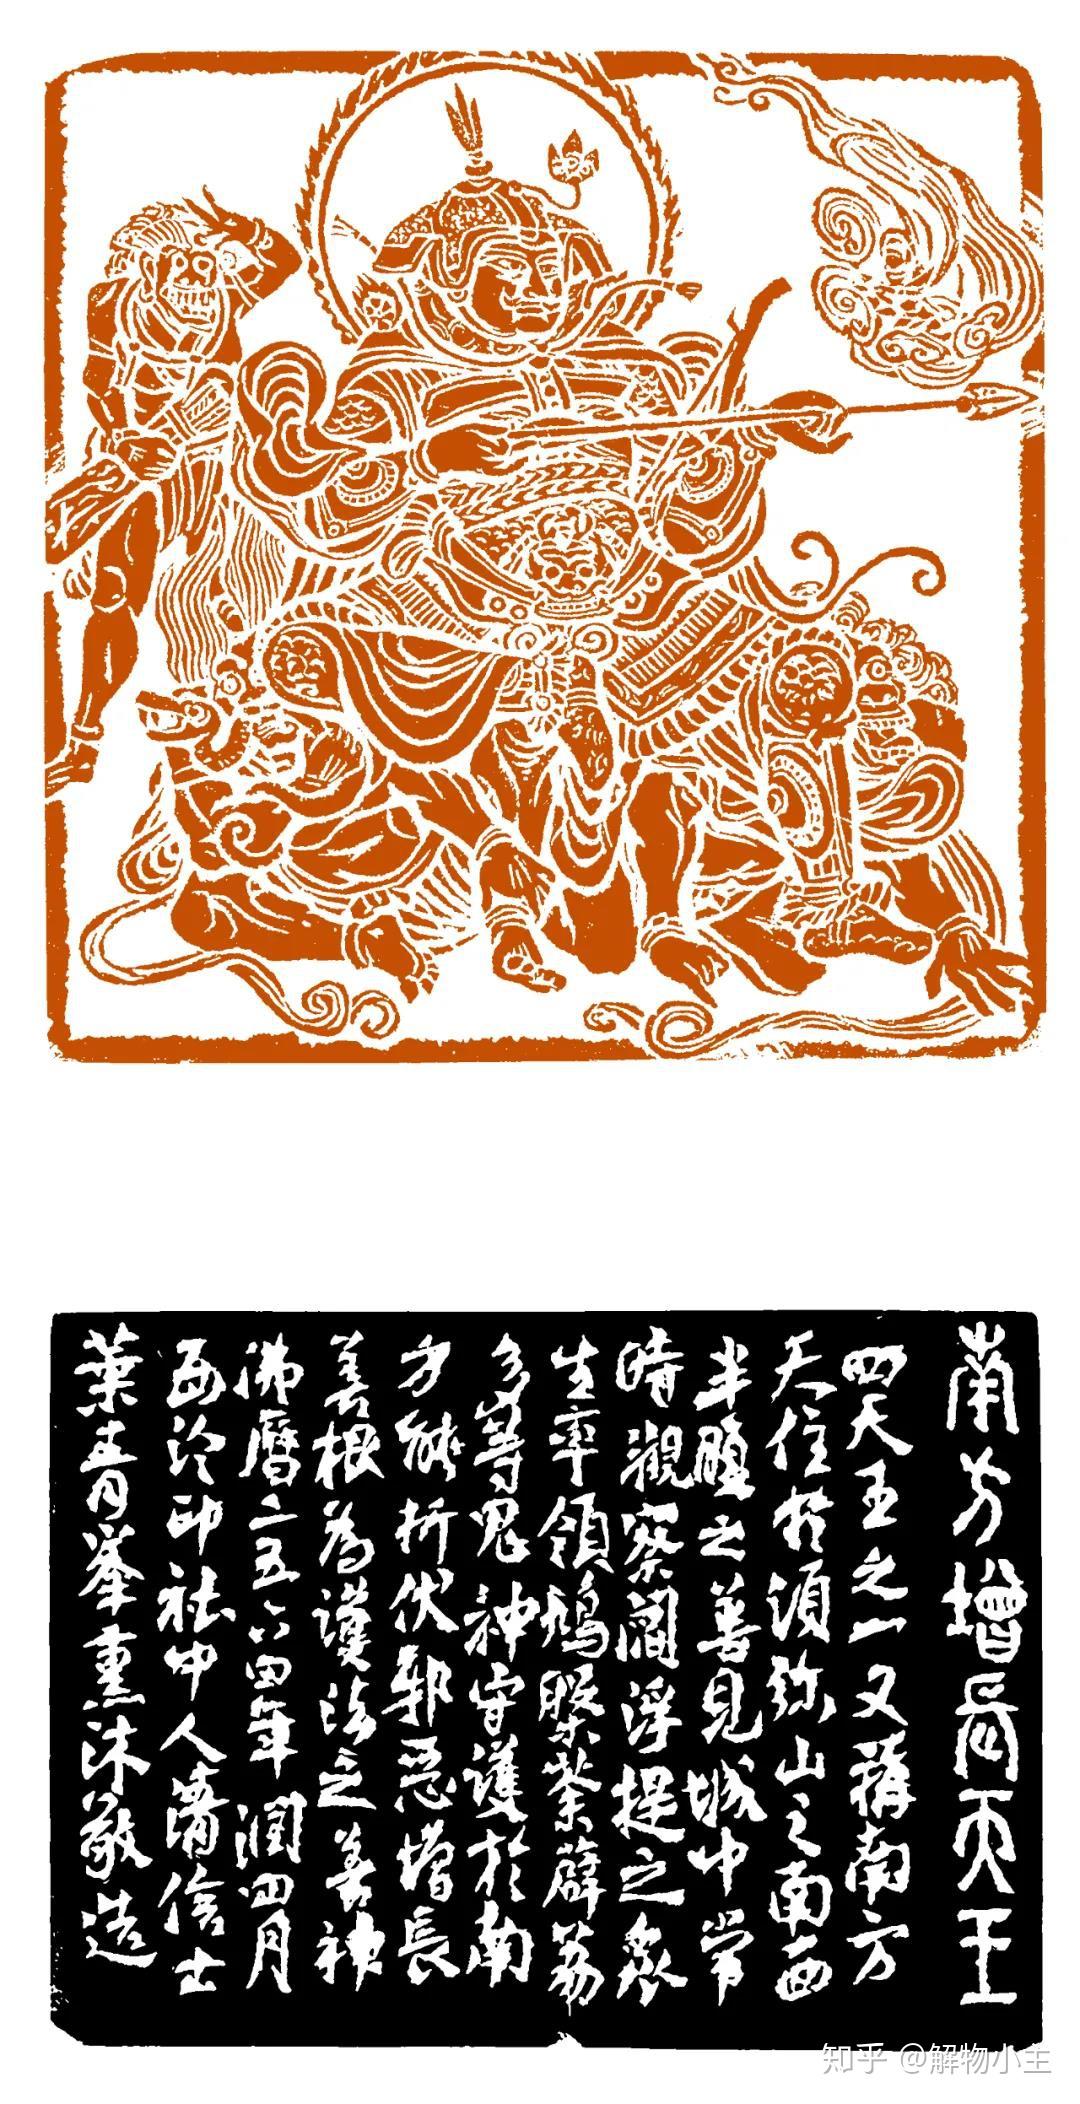 南方增長天王
四天王之一又稱南方
天住於須弥山之南面
半腹之善見城中常
時觀察閻浮提之衆
生率領鳩槃荼薜荔
多等鬼神守護於南
方能折伏邪惡增長
善根為護法之善神
佛曆二五六四年閏四月
西泠印社中人清信士
葉青峯熏沐敬造
知乎 @解物小主